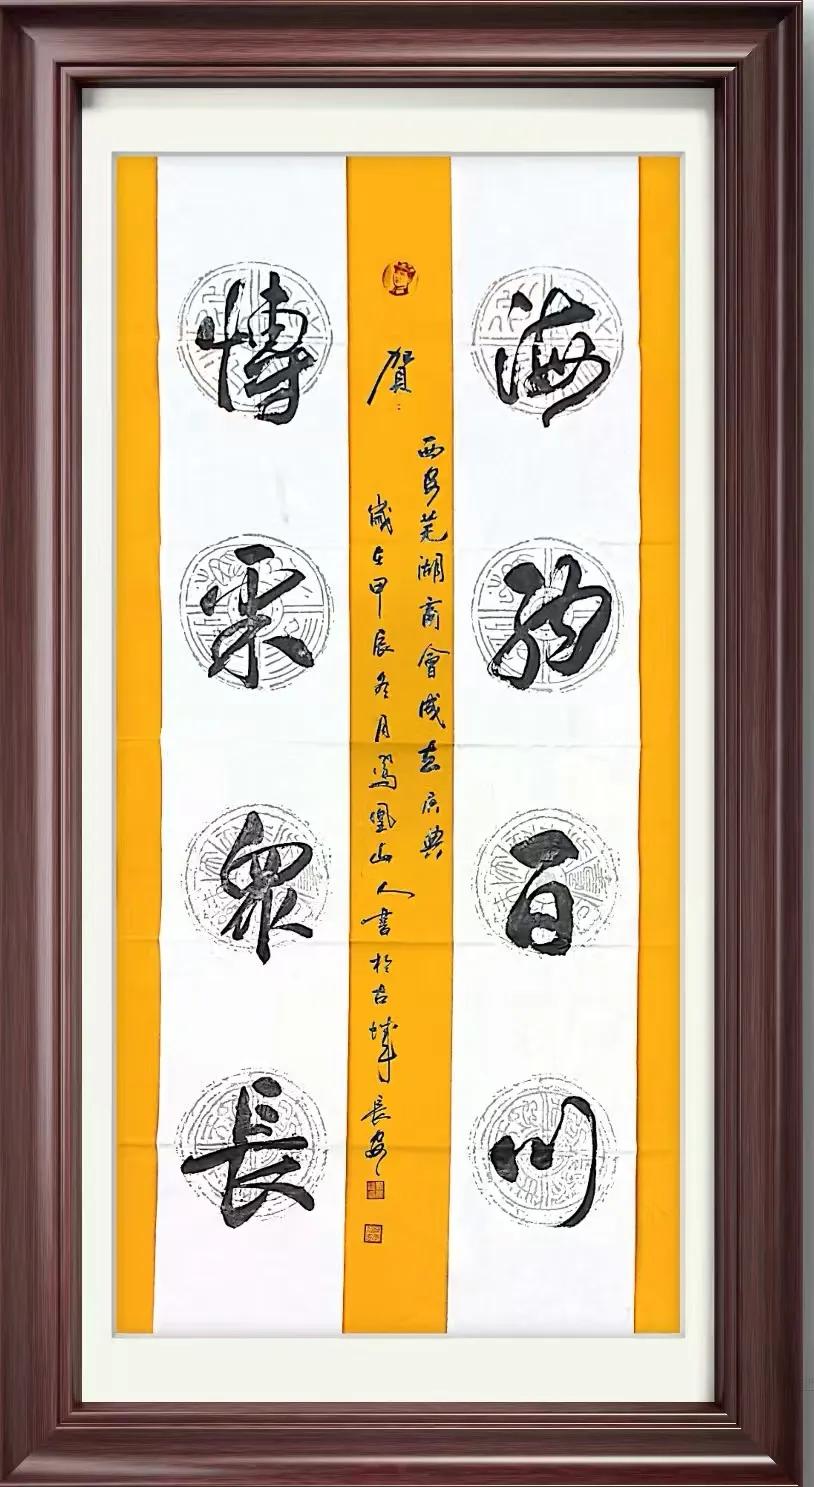 海納百川
賀：
西安芜湖商會成立庆典
歲在甲辰冬月鳳凰山人書於古城長安
博采眾長